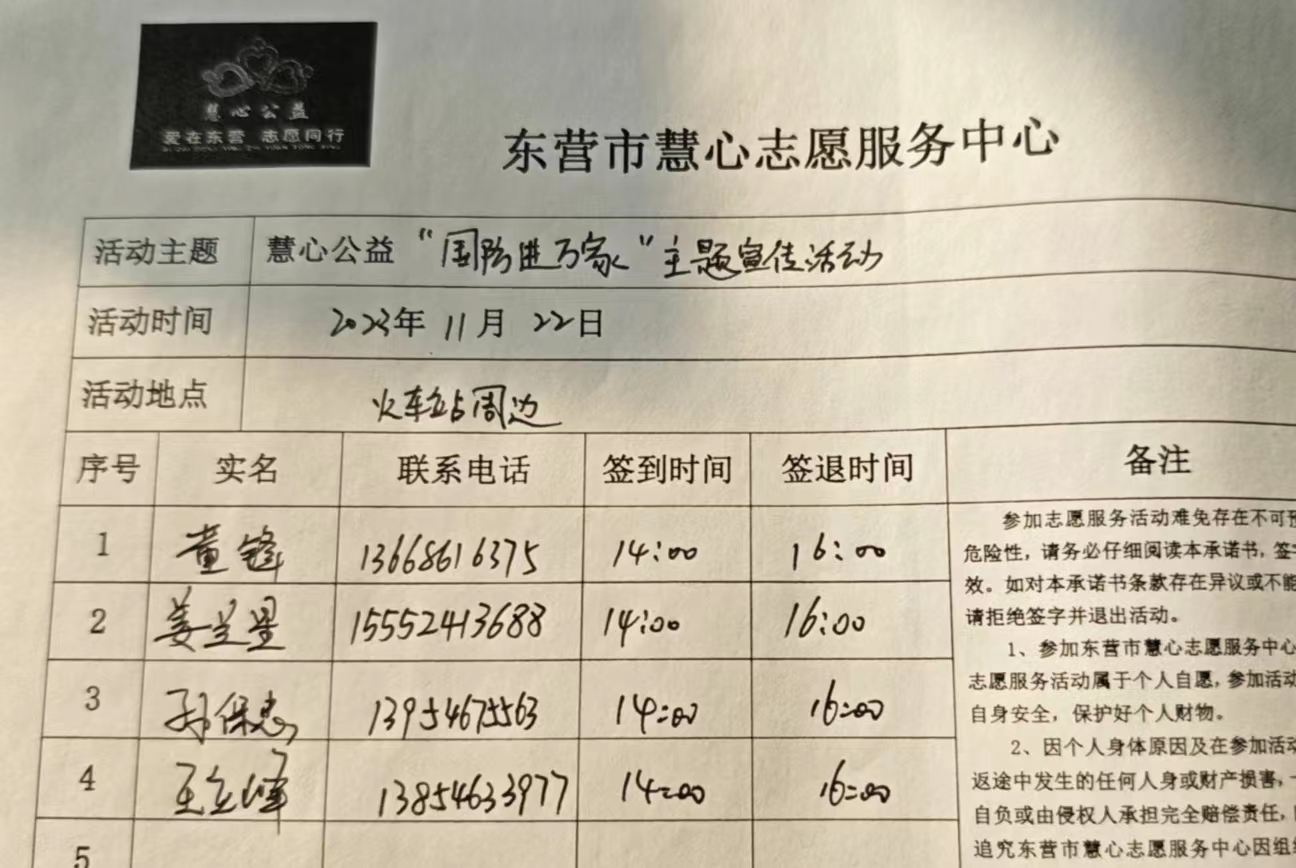 慧心公益
爱在东营 志愿同行
东营市慧心志愿服务中心
活动主题 慧心公益“国防进万家”主题宣传活动
活动时间 2023年 11月 22日
活动地点 火车站周边
序号 实名 联系电话 签到时间 签退时间 备注
1 董锋 13668616375 14:00 16:00
2 姜兰星 15552413688 14:00 16:00
3 孙保忠 13954675563 14:00 16:00
4 王立峰 13854633977 14:00 16:00
5
参加志愿服务活动难免存在不可预
危险性，请务必仔细阅读本承诺书，签字
效。如对本承诺书条款存在异议或不能
请拒绝签字并退出活动。
1、参加东营市慧心志愿服务中心
志愿服务活动属于个人自愿，参加活动
自身安全，保护好个人财物。
2、因个人身体原因及在参加活动
返途中发生的任何人身或财产损害，
自负或由侵权人承担完全赔偿责任，
追究东营市慧心志愿服务中心因组织